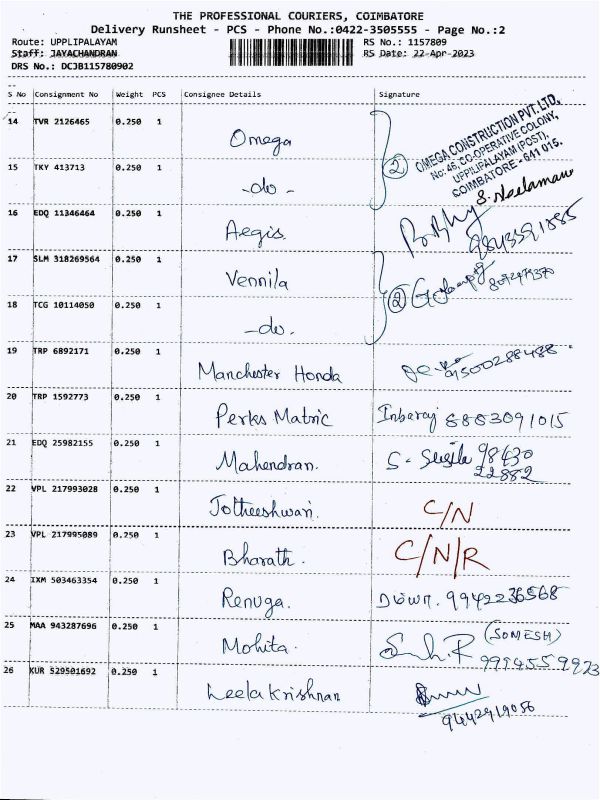 THE PROFESSIONAL COURIERS, COIMBATORE
Delivery Runsheet - PCS - Phone No.:0422-3505555 - Page No.:2
Route: UPPLIPALAYAM RS No.: 1157809
Staff: JAYACHANDRAN RS Date: 22-Apr-2023
DRS No.: DCJB115780902
S No Consignment No Weight PCS Consignee Details Signature
14 TVR 2126465 0.250 1 Omega
2
OMEGA CONSTRUCTION PVT. LTD,
No: 46, CO-OPERATIVE COLONY,
UPPILIPALAYAM (POST),
COIMBATORE - 641 015.
15 TKY 413713 0.250 1 -do-
16 EDQ 11346464 0.250 1 Aegis.
17 SLM 318269564 0.250 1 Vennila
2
18 TCG 10114050 0.250 1 -do.
19 TRP 6892171 0.250 1 Manchester Honda 9500288488
20 TRP 1592773 0.250 1 Perks Matric Inbaraj 8883091015
21 EDQ 25982155 0.250 1 Mahendran. S. Susila 98430
22882
22 VPL 217993028 0.250 1 Jotheeshwari. C/N
23 VPL 217995089 0.250 1 Bharath. C/N/R
24 IXM 503463354 0.250 1 Renuga. 9942236568
25 MAA 943287696 0.250 1 Mohita. (SOMESH)
9994559923
26 KUR 529501692 0.250 1 Leela Krishnan
9442919056